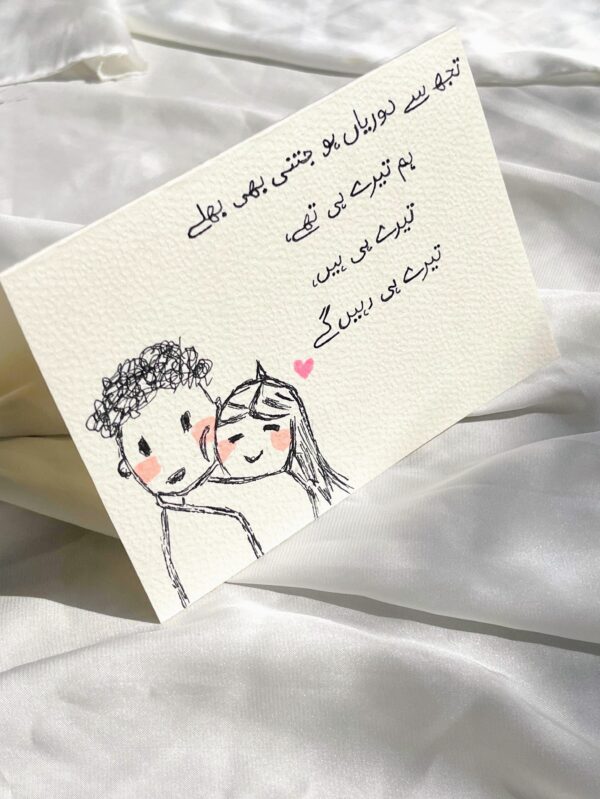 تجھ سے دوریاں ہو جتنی بھی بھلے
ہم تیرے ہی تھے،
تیرے ہی ہیں،
تیرے ہی رہیں گے